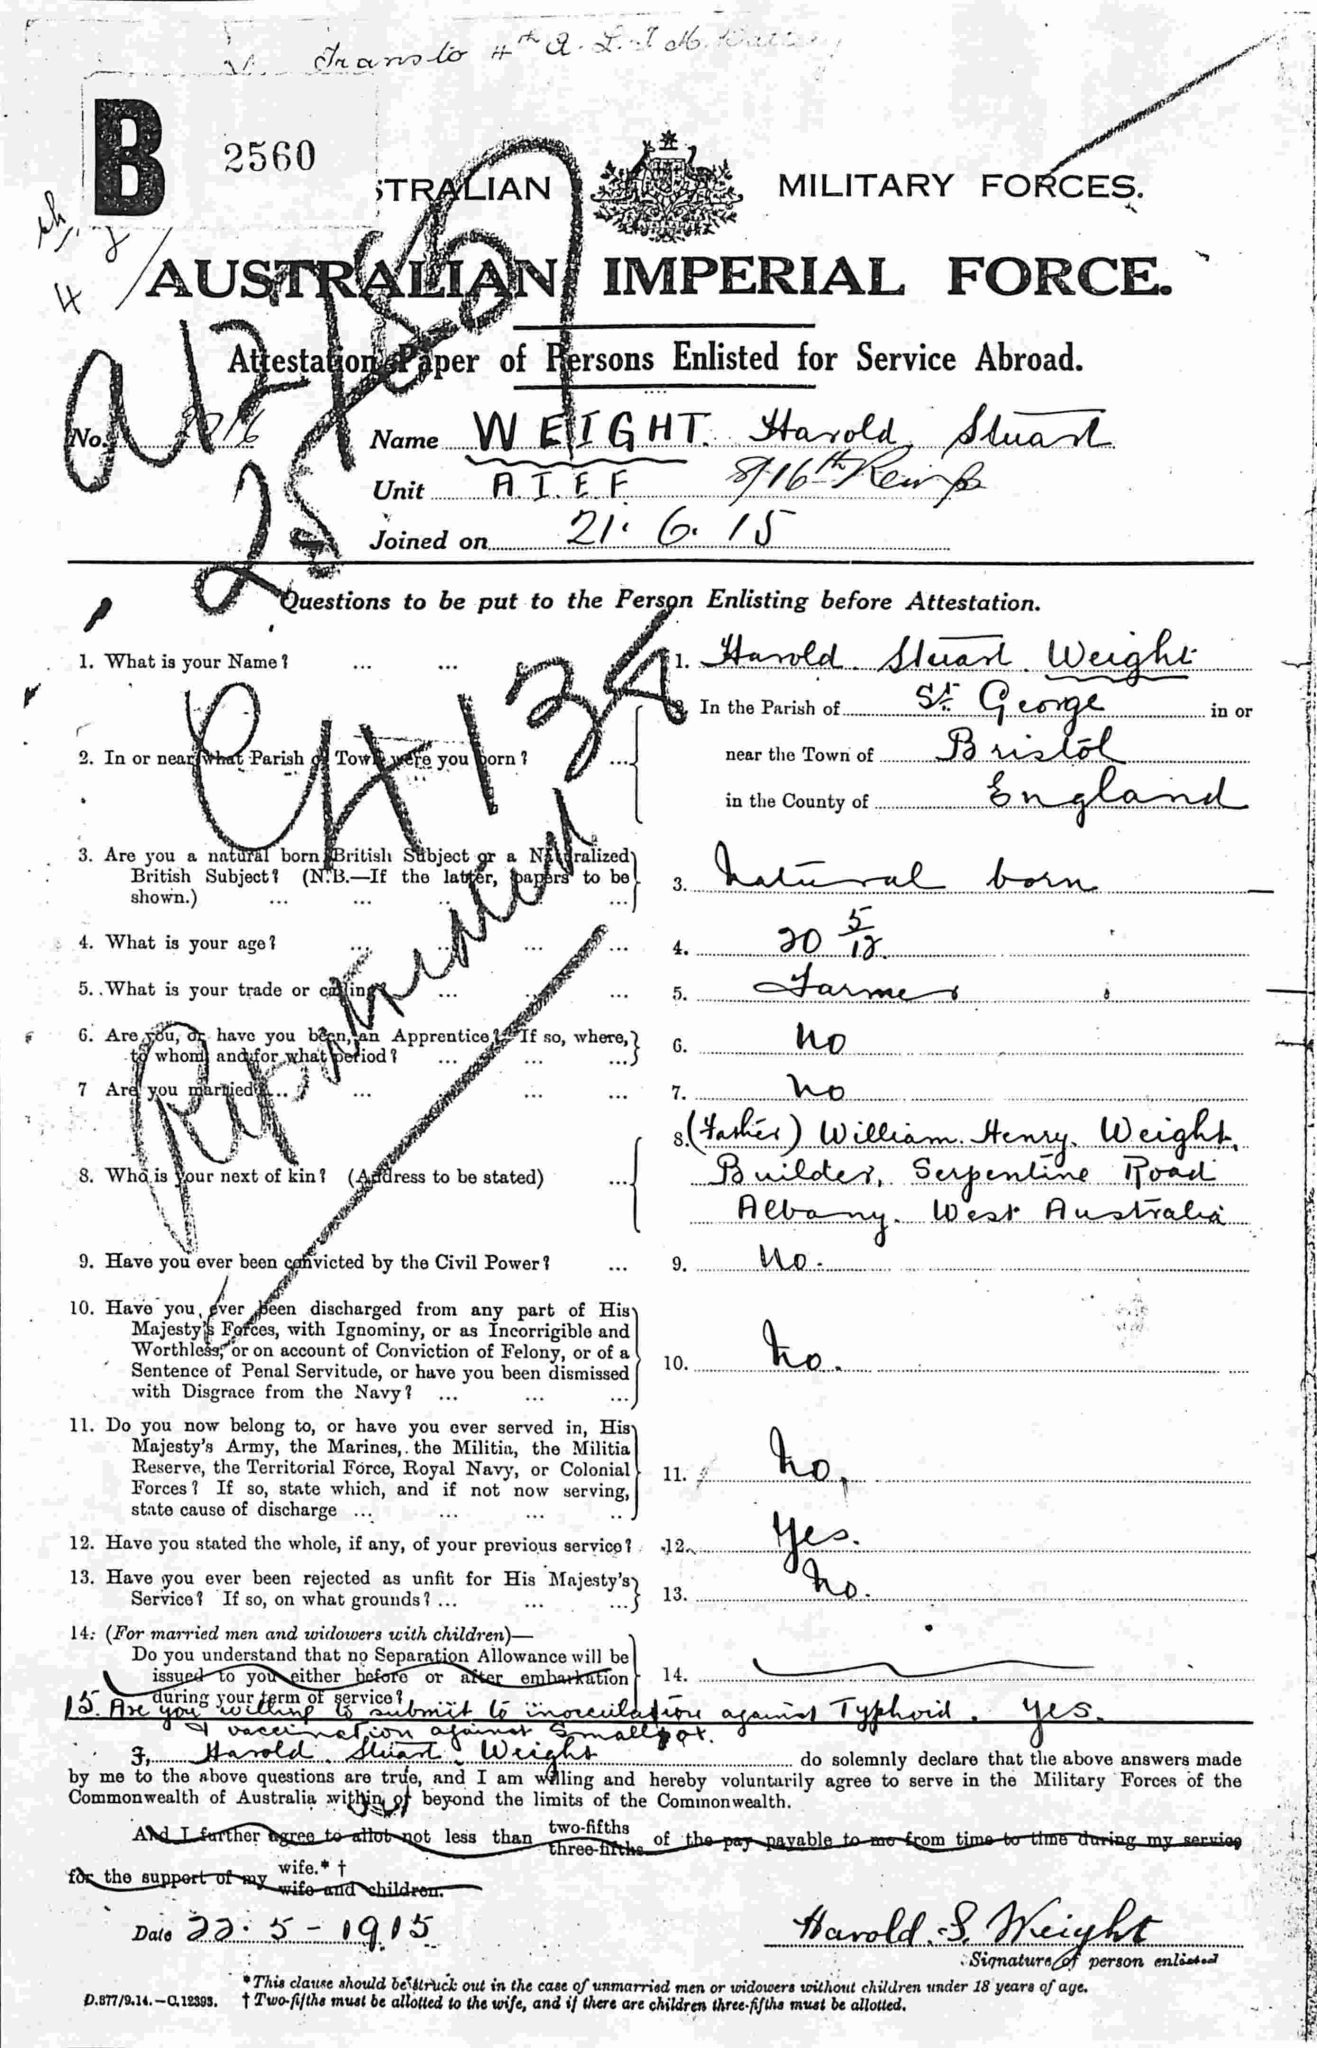 Trans to 4th A. L. T. M. Battery
B 2560
STRALIAN MILITARY FORCES.
AUSTRALIAN IMPERIAL FORCE.
Attestation Paper of Persons Enlisted for Service Abroad.
No. Name WEIGHT. Harold Stuart
Unit A.I.E.F. 8/16th Reinfs
Joined on 21. 6. 15
Questions to be put to the Person Enlisting before Attestation.
1. What is your Name? ... ... 1. Harold Stuart Weight
2. In or near what Parish or Town were you born? ... 2. In the Parish of St. George in or
near the Town of Bristol
in the County of England
3. Are you a natural born British Subject or a Naturalized
British Subject? (N.B.—If the latter, papers to be
shown.) ... ... ... ... 3. Natural born
4. What is your age? ... ... ... ... 4. 20 5/12
5. What is your trade or calling? ... ... ... 5. Farmer
6. Are you, or have you been, an Apprentice? If so, where,
to whom, and for what period? ... ... ... 6. No
7 Are you married? ... ... ... ... 7. No
8. Who is your next of kin? (Address to be stated) ... 8. (Father) William Henry Weight,
Builder, Serpentine Road
Albany. West Australia
9. Have you ever been convicted by the Civil Power? ... 9. No.
10. Have you ever been discharged from any part of His
Majesty's Forces, with Ignominy, or as Incorrigible and
Worthless, or on account of Conviction of Felony, or of a
Sentence of Penal Servitude, or have you been dismissed
with Disgrace from the Navy? ... ... ... 10. No.
11. Do you now belong to, or have you ever served in, His
Majesty's Army, the Marines, the Militia, the Militia
Reserve, the Territorial Force, Royal Navy, or Colonial
Forces? If so, state which, and if not now serving,
state cause of discharge ... ... ... .. 11. No,
12. Have you stated the whole, if any, of your previous service? 12. Yes.
13. Have you ever been rejected as unfit for His Majesty's
Service? If so, on what grounds? ... ... ... 13. No.
14. (For married men and widowers with children)—
Do you understand that no Separation Allowance will be
issued to you either before or after embarkation
during your term of service? 14.
15. Are you willing to submit to inocculation against Typhoid. Yes.
& vaccination against Smallpox.
I, Harold Stuart Weight do solemnly declare that the above answers made
by me to the above questions are true, and I am willing and hereby voluntarily agree to serve in the Military Forces of the
Commonwealth of Australia within or beyond the limits of the Commonwealth.
And I further agree to allot not less than two-fifths three-fifths of the pay payable to me from time to time during my service
for the support of my wife.* † wife and children.
Date 22. 5 - 1915 Harold. S. Weight
Signature of person enlisted
*This clause should be struck out in the case of unmarried men or widowers without children under 18 years of age.
D.877/9.14.—C.12393. † Two-fifths must be allotted to the wife, and if there are children three-fifths must be allotted.